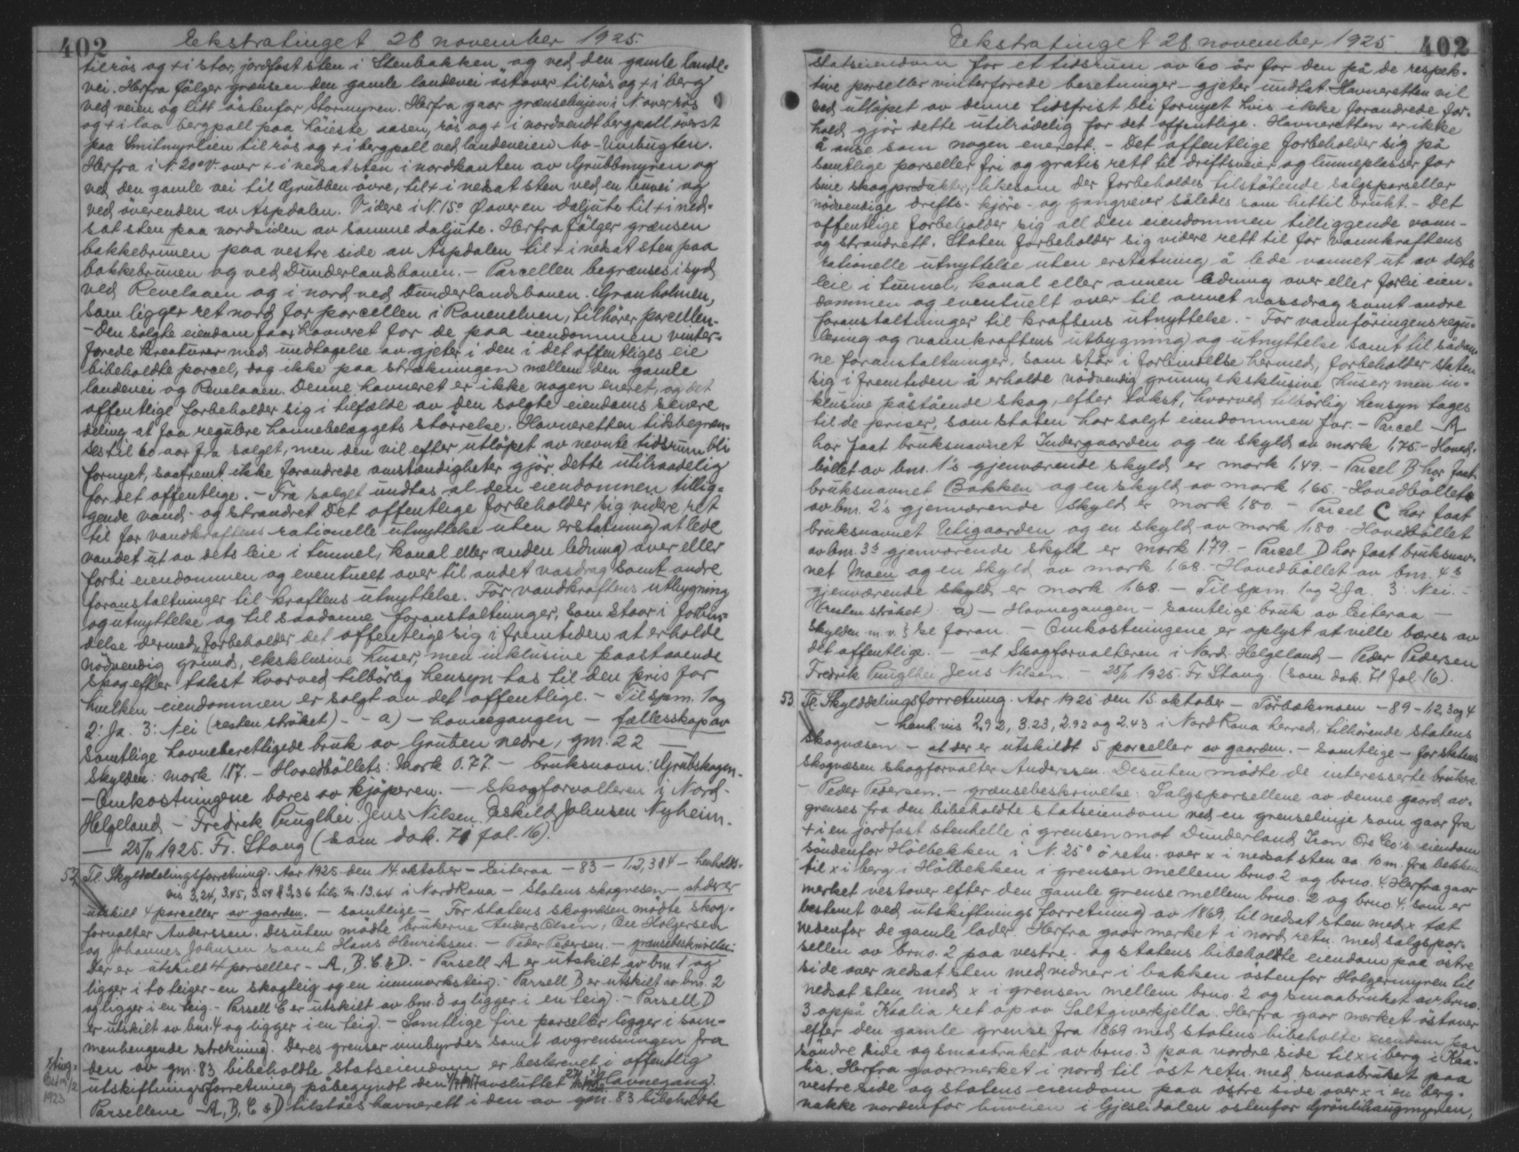 402
Ekstratinget 28 november 1925.
til rös og + i stor, jordfast sten i Stenbakken og ved den gamle lande-
vei. Herfra fölger grænsen den gamle landevei östover til rös og + i berg
ved veien og litt östenfor Stormyren. Herfra gaar grænselinjen i N over rös
og + i lav bergpall paa höieste aasen, rös og + i nordvendt bergpall överst
paa Smitmyrlien til rös og + i bergpall ved landeveien Mo-Umbugten.
Herfra i N. 20° V. over + i nedsat sten i nordkanten av Grubbmyren og
ved den gamle vei til Grubben övre, til + i nedsat sten ved en tunvei og
ved överenden av Aspdalen. Videre i N. 15° Ö over en daljute til + i ned-
sat sten paa nordsiden av samme daljute. Herfra fölger grænsen
bakkebrunen paa vestre side av Aspdalen til + i nedsat sten paa
bakkebrunen og ved Dunderlandsbanen. - Parcellen begrænses i syd
ved Revelaaen og i nord ved Dunderlandsbanen. Granholmen,
som ligger ret nord for parcellen i Ranenelven, tilhörer parcellen.
- Den solgte eiendom faar havneret for de paa eiendommen vinter-
forede kreaturer med undtagelse av gjeter i den i det offentliges eie
bibeholdte parcel, dog ikke paa strækningen mellem den gamle
landevei og Revelaaen. Denne havneret er ikke nogen eneret, og det
offentlige forbeholder sig i tilfælde av den solgte eiendoms senere
deling at faa regulere havnebelæggets störrelse. Havneretten tidsbegræn-
ses til 60 aar fra salget, men den vil efter utlöpet av nævnte tidsrum bli
fornyet, saafremt ikke forandrede omstændigheter gjör dette utilraadelig
for det offentlige. - Fra salget undtas al den eiendommen tillig-
gende vand- og strandret. Det offentlige forbeholder sig videre ret
til for vandkraftens rationelle utnyttelse uten erstatning at lede
vandet ut av dets leie i tunnel, kanal eller anden ledning over eller
forbi eiendommen og eventuelt over til andet vasdrag samt andre
foranstaltninger til kraftens utnyttelse. For vandkraftens utbygning
og utnyttelse og til saadanne foranstaltninger, som staar i forbin-
delse dermed, forbeholder det offentlige sig i fremtiden at erholde
nödvendig grund, eksklusive huser, men inklusive paastaaende
skog efter takst hvorved tilbörlig hensyn tas til den pris for
hvilken eiendommen er solgt av det offentlige. - Til spm. 1 og
2: Ja. 3: Nei (resten ströket) - - a) - havnegangen - fællesskap av
samtlige havneberettigede bruk av Gruben nedre, gm. 22 -
Skylden: mark 1.17. - Hovedböllets: Mark 0.77 - bruksnavn: Grubskogen.
- Omkostningene bæres av kjöperen. - Skogforvalteren i Nord-
Helgeland - Fredrik Pruglhei Jens Nilsen. Eskild Johnsen Nyheim.
- 25/11 1925. Fr. Stang (som dok. 71 fol. 16).
52 Tl. Skylddelingsforretning. Aar 1925 den 14 oktober - Eiteraa - 83 - 1, 2, 3 og 4 - henholds-
vis 3,24, 3,45, 3.59 & 3,36 tils. m. 13.64 i Nord Rana - Statens skogvesen - at der er
utskilt 4 parceller av gaarden. - samtlige - For statens skogvæsen mödte skog-
forvalter Anderssen. Desuten mödte brukerne Anders Olsen, Ole Holgersen
og Johannes Johnsen samt Hans Henriksen. - Peder Pedersen. - grænsebeskrivelse:
Der er utskilt 4 parseller - A, B, C & D. - Parsell A er utskilt av bm. 1 og
ligger i to teiger - en skogteig og en innmarksteig. - Parsell B er utskilt av bm. 2
og ligger i en teig. - Parsell C er utskilt av bm. 3 og ligger i en teig. - Parsell D
er utskilt av bm. 4 og ligger i en teig. - Samtlige fire parseller ligger i sam-
menhengende strekning. Deres grenser innbyrdes samt avgrensningen fra
den av gm. 83 bibeholdte statseiendom er beskrevet i offentlig
utskiftningsforretning påbegyndt den avsluttet Havnegang.
Parsellene A, B, C & D tilståes havnerett i den av gm. 83 bibeholdte
1923
402
Ekstratinget 28 november 1925
statseiendom for et tidsrum av 60 år for den på de respek-
tive parseller vinterforede besetninger - gjeter undtat. Havneretten vil
ved utlöpet av denne tidsfrist bli fornyet hvis ikke forandrede for-
hold gjör dette utilrådelig for det offentlige. Havneretten er ikke
å anse som nogen enerett. - Det offentlige forbeholder sig på
samtlige parseller fri og gratis rett til driftsveier og lunneplasser for
sine skogprodukter, likesom der forbeholdes tilstötende salgsparseller
nödvendige drifts- kjöre- og gangveier således som hittil brukt. - Det
offentlige forbeholder sig all den eiendommen tilliggende vann-
og strandrett. Staten forbeholder sig videre rett til for vannkraftens
rationelle utnyttelse uten erstatning å lede vannet ut av dets
leie i tunnel, kanal eller annen ledning over eller forbi eien-
dommen og eventuelt over til annet vassdrag samt andre
foranstaltninger til kraftens utnyttelse. - For vannföringens regu-
lering og vannkraftens utbygning og utnyttelse samt til sådan-
ne foranstaltninger, som står i forbindelse hermed, forbeholder staten
sig i fremtiden å erholde nödvendig grunn, eksklusive huser, men in-
klusive påstående skog, efter takst, hvorved tilbörlig hensyn tages
til de priser, som staten har solgt eiendommen for. - Parcel A
har faat bruksnavnet Indergaarden og en skyld av mark 1,75 - Hoved-
böllet av bm. 1's gjenværende skyld er mark 1,49. - Parcel B har faat
bruksnavnet Bakken og en skyld av mark 1,65. - Hovedböllets
av bm. 2's gjenværende skyld er mark 1,80 - Parcel C har faat
bruksnavnet Utigaarden og en skyld av mark 1,80 - Hovedböllet
av bm. 3's gjenværende skyld er mark 1.79. - Parcel D har faat bruksnav-
net Moen og en skyld av mark 1,68. - Hovedböllet av bm. 4's
gjenværende skyld er mark 1.68. - Til spm. 1 og 2 Ja. 3. Nei -
(resten ströket) a) - Havnegangen - samtlige bruk av Eiteraa -
Skylden m. v. se foran. - Omkostningene er oplyst at ville bæres av
det offentlige. - at Skogforvalteren i Nord. Helgeland - Peder Pedersen
Fredrik Pruglhei Jens Nilsen. - 25/11 1925. Fr. Stang. (som dok. 71 fol. 16).
53 Tl. Skylddelingsforretning. Aar 1925 den 15 oktober - Törbakmoen - 89 - 1, 2, 3 og 4
- henh.vis 2,92, 3,23, 2.92 og 2.43 i Nord Rana herred, tilhörende statens
skogvæsen - at der er utskildt 5 parceller av gaarden. - samtlige - for statens
skogvæsen skogforvalter Anderssen. Desuten mödte de interesserte brukere
- Peder Pedersen. - grænsebeskrivelse: Salgsparsellene av denne gaard av-
grenses fra den bibeholdte statseiendom ved en grenselinje som gaar fra
+ i en jordfast stenhelle i grensen mot Dunderland Iron Ore Co's eiendom
söndenfor Hölbekken i N. 25° ö retn. over x i nedsat sten ca. 10 m. fra bekken
til x i berg i Hölbekken i grensen mellem brno. 2 og brno. 4. Herfra gaar
merket vestover efter den gamle grense mellem brno. 2 og brno. 4, som er
bestemt ved utskiftningsforretning av 1869, til nedsat sten med x tæt
nedenfor de gamle lader. Herfra gaar merket i nord retn. med salgspar-
sellen av brno. 2 paa vestre og statens bibeholdte eiendom paa östre
side over nedsat sten med vidner i bakken östenfor Holgermyren til
nedsat sten med x i grensen mellem brno. 2 og smaabruket av brno.
3 oppå Kaalia ret op av Saltgiverkjella. Herfra gaar merket östover
efter den gamle grense fra 1869 med statens bibeholdte eiendom paa
söndre side og smaabruket av brno. 3 paa nordre side til x i berg i Kaa-
lia. Herfra gaar merket i nord til öst retn. med smaabruket paa
vestre side og statens eiendom paa östre side over x i en berg-
nakke nordenfor buveien i Gjeslidalen östenfor Grönlihaugmyren,